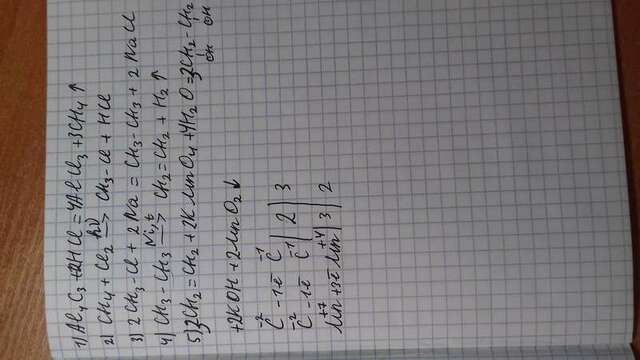 1) Al₄C₃ + 12HCl = 4AlCl₃ + 3CH₄ ↑
2) CH₄ + Cl₂ hν→ CH₃-Cl + HCl
3) 2CH₃-Cl + 2Na = CH₃-CH₃ + 2NaCl
4) CH₃-CH₃ Ni,t→ CH₂=CH₂ + H₂ ↑
5) 3CH₂=CH₂ + 2KMnO₄ + 4H₂O = 3CH₂-CH₂
OH OH
+ 2KOH + 2MnO₂ ↓
C⁻² -1e̅ C⁻¹
C⁻² -1e̅ C⁻¹ | 2 | 3
Mn⁺⁷ +3e̅ Mn⁺⁴ | 3 | 2